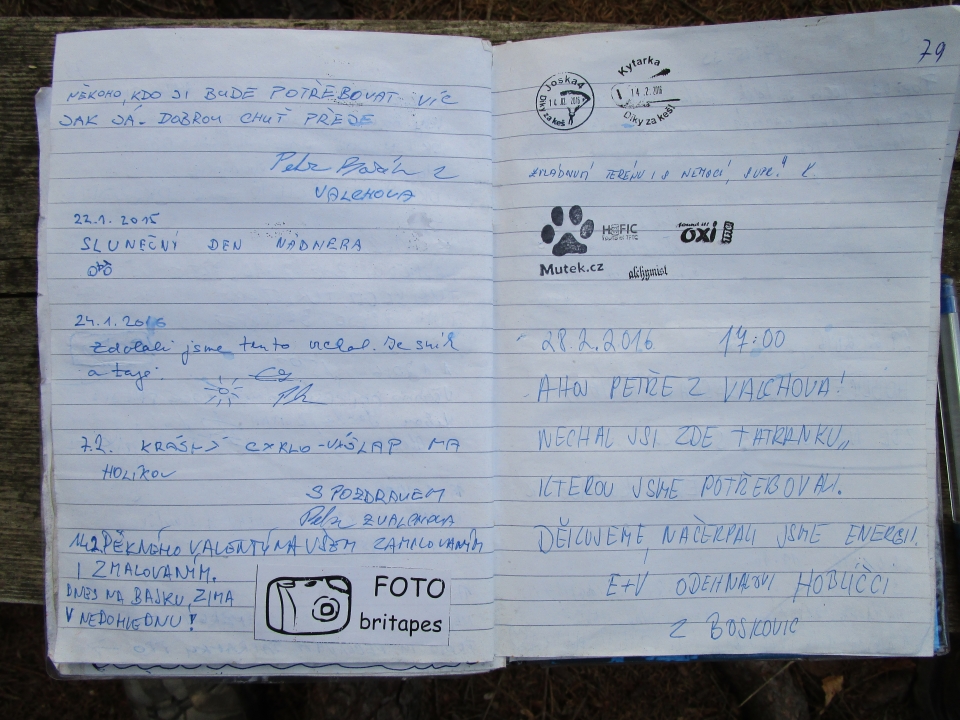 NĚKOHO, KDO JI BUDE POTŘEBOVAT VÍC
JAK JÁ. DOBROU CHUŤ PŘEJE
Petr Z
VALCHOVA
22.1.2015
SLUNEČNÝ DEN NÁDHERA
24.1.2016
Zdolali jsme tento vrchol. Je sníh
a taje.
7.2. KRÁSNÝ CYKLO-VÝŠLAP NA
HOLÍKOV
S POZDRAVEM
Petr Z VALCHOVA
14.2. PĚKNÉHO VALENTÝNA VŠEM ZAMILOVANÝM
I ZMALOVANÝM.
DNES NA BAJKU, ZIMA
V NEDOHLEDNU!
FOTO
britapes
79
Joska4
14. XI. 2016
Díky za keš
Kytarka
14.2.2016
Díky za keš!
ZVLÁDNUTÍ TERÉNU I S NEMOCÍ, SUPR! K
HOFIC
OXI
Mutek.cz
alchymist
28.2.2016 17:00
AHOJ PETŘE Z VALCHOVA!
NECHAL JSI ZDE TATRANKU,
KTEROU JSME POTŘEBOVALI.
DĚKUJEME, NAČERPALI JSME ENERGII.
E+V ODEHNALOVI
Z BOSKOVIC